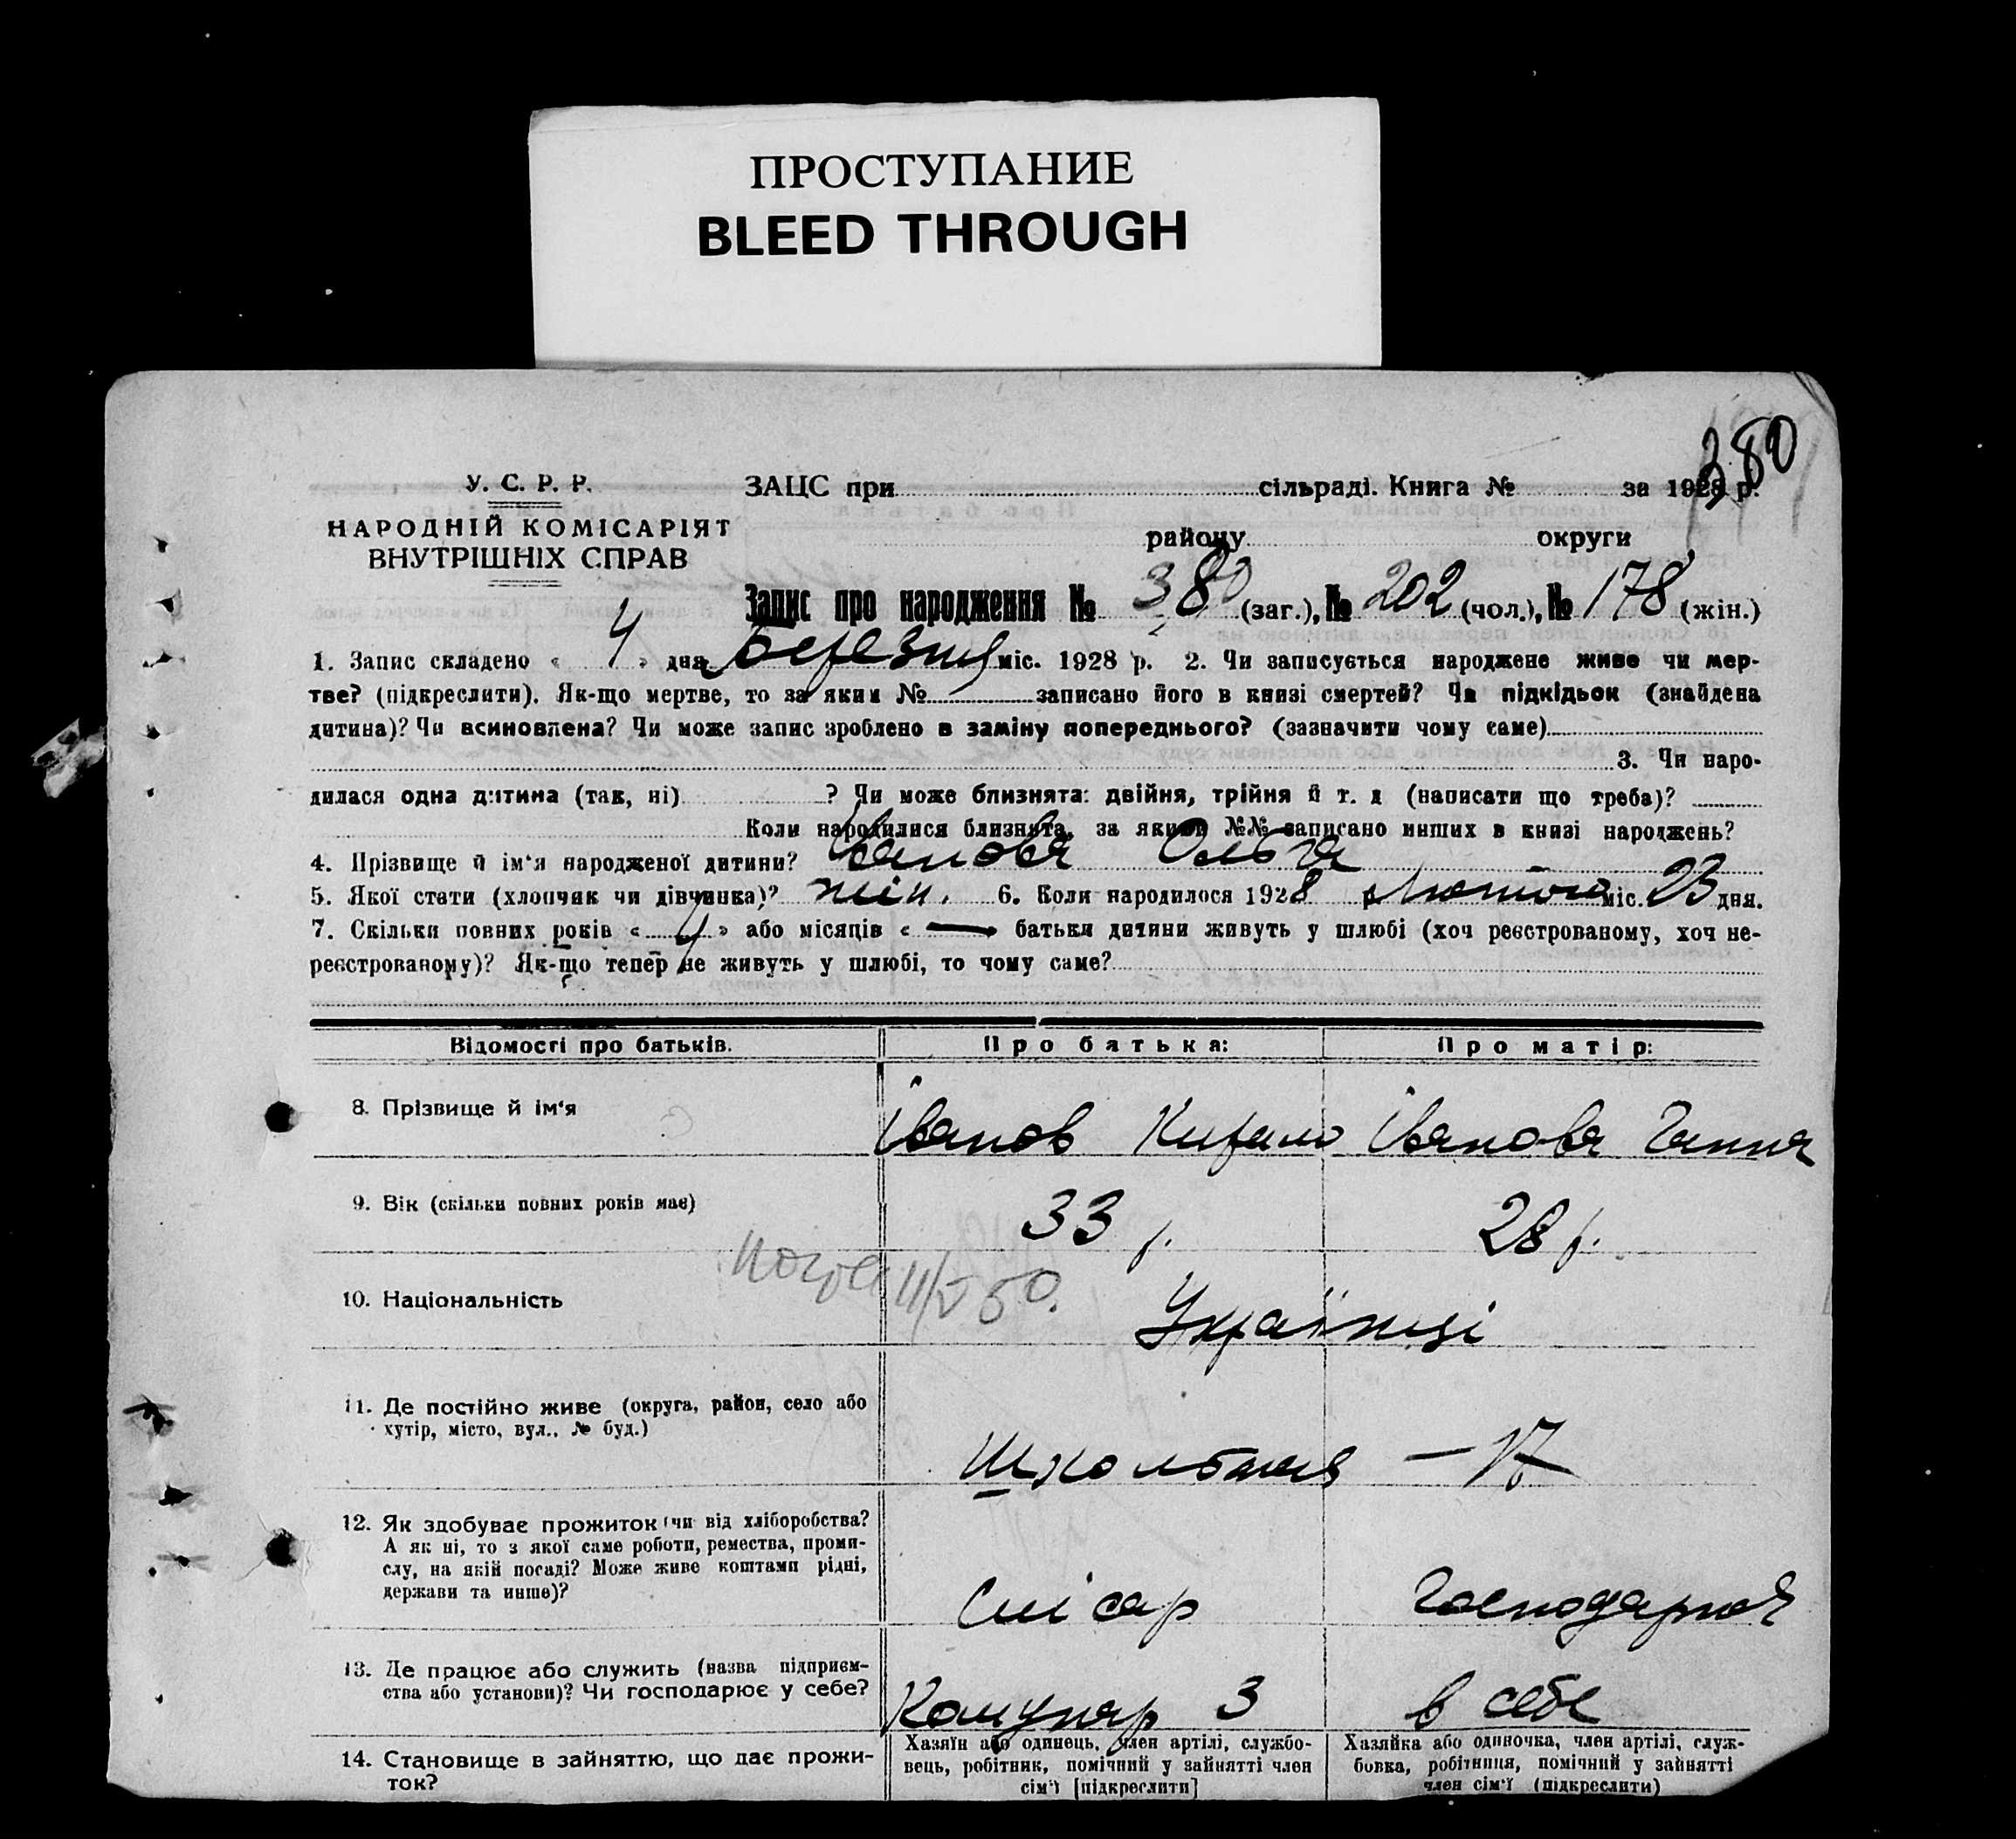 ПРОСТУПАНИЕ
BLEED THROUGH
380
У. С. Р. Р.
НАРОДНІЙ КОМІСАРІЯТ
ВНУТРІШНІХ СПРАВ
ЗАЦС при сільраді. Книга № за 1928 р.
району округи
Запис про народження № 380 (заг.), № 202 (чол.), № 178 (жін.)
1. Запис складено « 4 » дня Березня міс. 1928 р. 2. Чи записується народжене живе чи мер-
тве? (підкреслити). Як-що мертве, то за яким № записано його в книзі смертей? Чи підкідьок (знайдена
дитина)? Чи всиновлена? Чи може запис зроблено в заміну попереднього? (зазначити чому саме)
3. Чи наро-
дилася одна дитина (так, ні) ? Чи може близнята: двійня, трійня й т. д (написати що треба)?
Коли народилися близнята, за якими №№ записано инших в книзі народжень?
4. Прізвище й ім'я народженої дитини? Іванова Ольга
5. Якої стати (хлопчик чи дівчинка)? жін. 6. Коли народилося 1928 р Лютого міс. 23 дня.
7. Скільки повних років « 4 » або місяців « — » батьки дитини живуть у шлюбі (хоч реєстрованому, хоч не-
реєстрованому)? Як-що тепер не живуть у шлюбі, то чому саме?
Відомості про батьків. Про батька: Про матір:
8. Прізвище й ім'я Іванов Кирило Іванова Ганна
9. Вік (скільки повних років має) 33 р. 28 р.
11/V 50.
10. Національність Українці
11. Де постійно живе (округа, район, село або
хутір, місто, вул., № буд.)
Школьная — 17
12. Як здобуває прожиток (чи від хліборобства?
А як ні, то з якої саме роботи, ремества, проми-
слу, на якій посаді? Може живе коштами рідні,
держави та инше)?
Слісар Господарноя
13. Де працює або служить (назва підприєм-
ства або установи)? Чи господарює у себе?
Комунар 3 в себе
14. Становище в зайняттю, що дає прожи-
ток?
Хазяїн або одинець, член артілі, службо-
вець, робітник, помічний у зайнятті член
сім'ї [підкреслити]
Хазяйка або одиночка, член артілі, служ-
бовка, робітниця, помічний у зайнятті
член сім'ї (підкреслити)